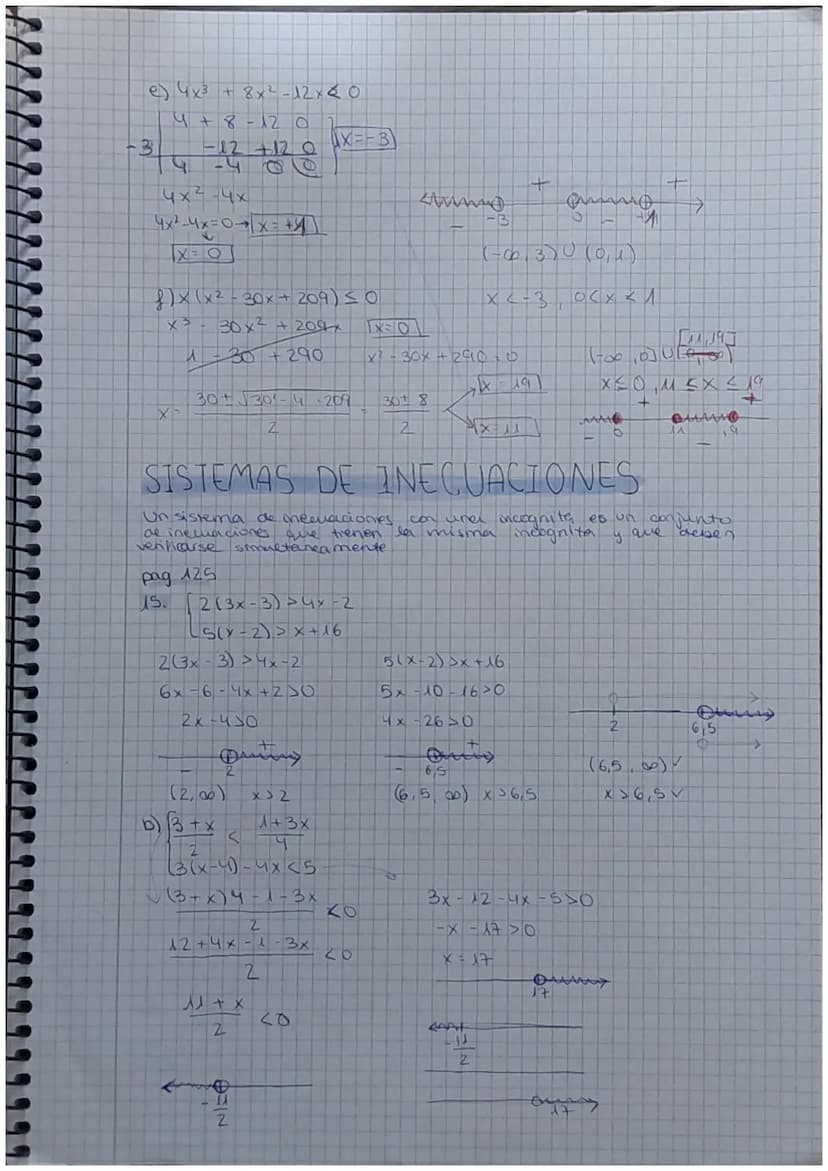 e) 4x³ + 8x² - 12x < 0
4 + 8 - 12 0
-3 -12 +12 0 x = -3
4 -4 0 0
4x² - 4x
4x² - 4x = 0 → x = +1
x = 0
+ +
-3 0 - +1
-
(-∞, 3) ∪ (0, 1)
x < -3, 0 < x < 1
f) x(x² - 30x + 209) ≤ 0
x³ - 30x² + 209x x = 0
1 - 30 + 290 x² - 30x + 290 = 0
x = 30 ± √30² - 4 · 209 / 2 = 30 ± 8 / 2
x = 19
x = 11
[11, 19]
(-∞, 0] ∪
x ≤ 0, 11 ≤ x ≤ 19
+ +
- 0 11 - 19
SISTEMAS DE INECUACIONES
Un sistema de inecuaciones con una incognita es un conjunto
de inecuaciones que tienen la misma incognita y que deben
verificarse simultaneamente
pag 125
15. { 2(3x - 3) > 4x - 2
5(x - 2) > x + 16
2(3x - 3) > 4x - 2
6x - 6 - 4x + 2 > 0
2x - 4 > 0
- 2 +
(2, ∞) x > 2
5(x - 2) > x + 16
5x - 10 - 16 > 0
4x - 26 > 0
- 6,5 +
(6,5, ∞) x > 6,5
2 6,5
(6,5, ∞) ✓
x > 6,5 ✓
b) { 3 + x / 2 < 1 + 3x / 4
3(x - 4) - 4x < 5
(3 + x)4 - 1 - 3x / 2 < 0
12 + 4x - 1 - 3x / 2 < 0
11 + x / 2 < 0
- 11/2
3x - 12 - 4x - 5 > 0
-x - 17 > 0
x = 17
17
- 11/2
17